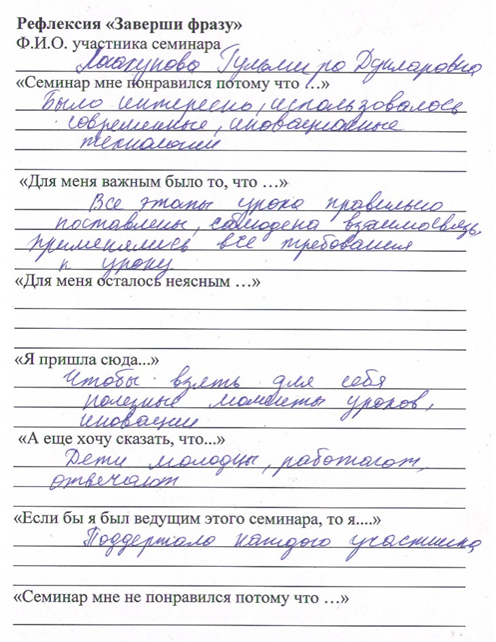 Рефлексия «Заверши фразу»
Ф.И.О. участника семинара
Гульмира Ддиларовна
«Семинар мне понравился потому что …»
Было интересно, использовалось
современные, иновационные
технологии
«Для меня важным было то, что …»
Все этапы урока правильно
поставлены, соблюдена взаимосвязь,
применялись все требования
к уроку
«Для меня осталось неясным …»
«Я пришла сюда...»
Чтобы взять для себя
полезные моменты уроков,
иновации
«А еще хочу сказать, что...»
Дети молодцы, работают,
отвечают
«Если бы я был ведущим этого семинара, то я....»
Поддержала каждого участника
«Семинар мне не понравился потому что …»